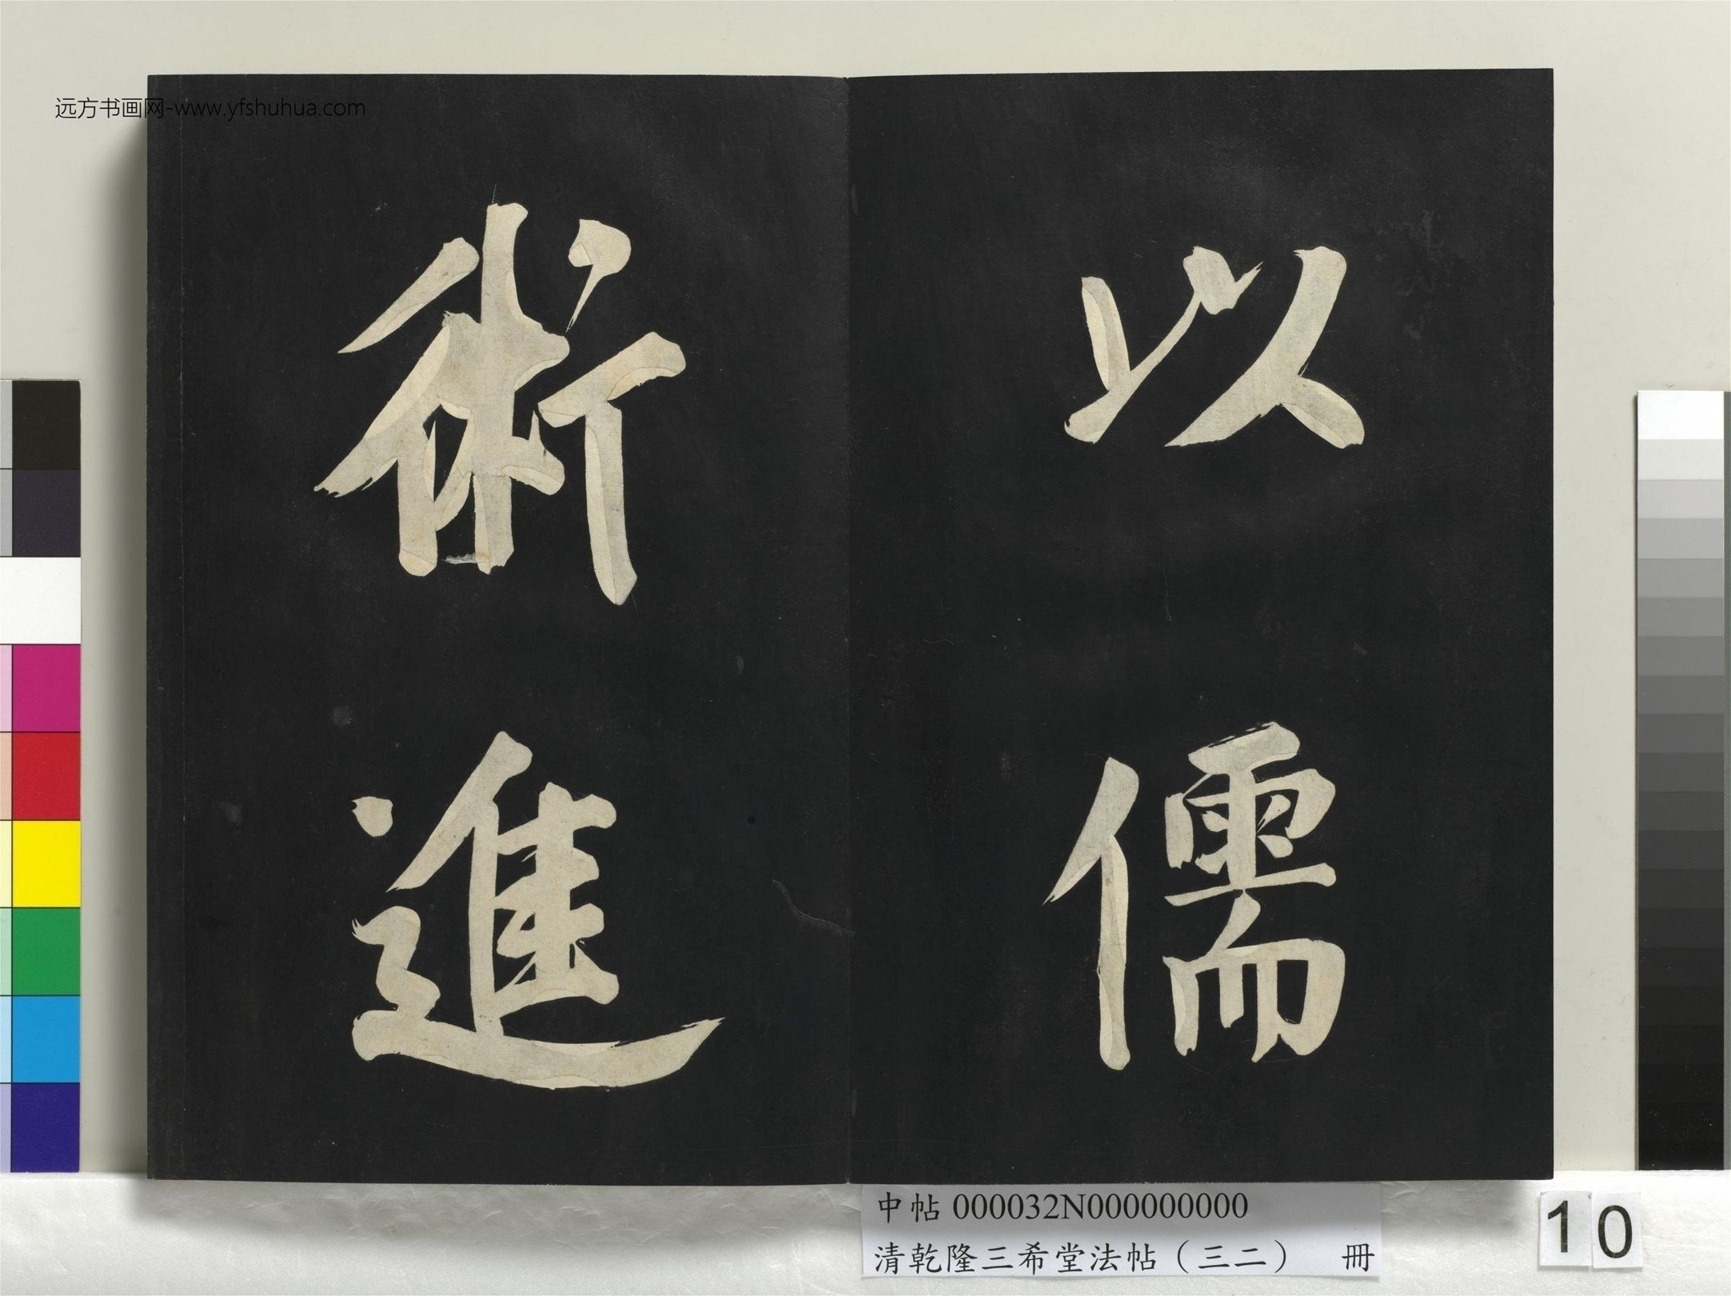 远方书画网-www.yfshuhua.com
以儒
術進
中帖 000032N000000000
清乾隆三希堂法帖（三二） 冊
10